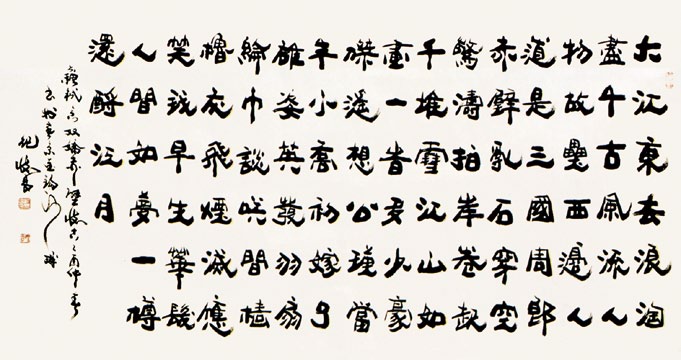 大江東去浪淘
盡千古風流人
物故壘西邊人
道是三國周郎
赤壁亂石穿空
驚濤拍岸卷起
千堆雪江山如
畫一旹多少豪
傑遙想公瑾當
年小喬初嫁了
雄姿英發羽扇
綸巾談咲間檣
櫓灰飛煙滅應
笑我早生華髮
人間如夢一樽
還酹江月
蘇軾念奴嬌赤壁懷古乙酉仲春